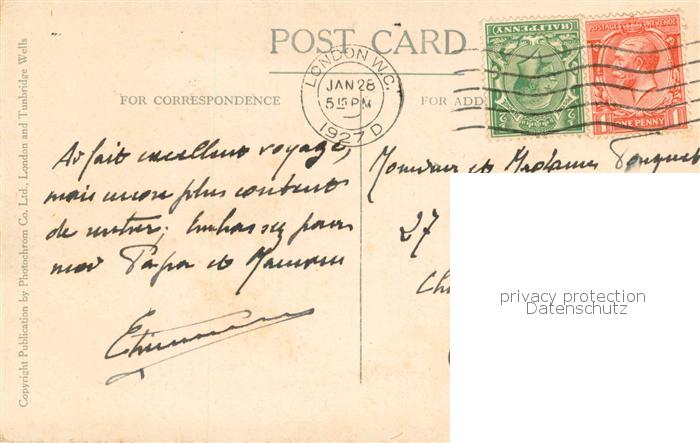 POST CARD
FOR CORRESPONDENCE
FOR ADD
LONDON W.C.
JAN 28
5 15 PM
1927 D
HALFPENNY
POSTAGE
ONE PENNY
1 1
Copyright Publication by Photochrom Co., Ltd., London and Tunbridge Wells
Ai fait excellent voyage,
mais encore plus content
de rentrer. Embrassez pour
moi Papa et Maman
Etienne
Monsieur et Madame
27
Ch
privacy protection
Datenschutz